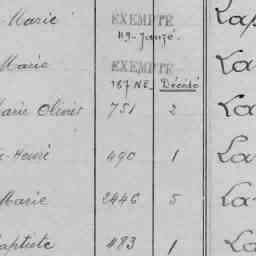 Marie EXEMPTÉ Lap
49-Janzé.
Marie EXEMPTÉ La
187 NE. Décédé
Marie Olivier 751 2 La
Henri 490 1 La
Marie 2446 5 La
aptiste 483 1 La